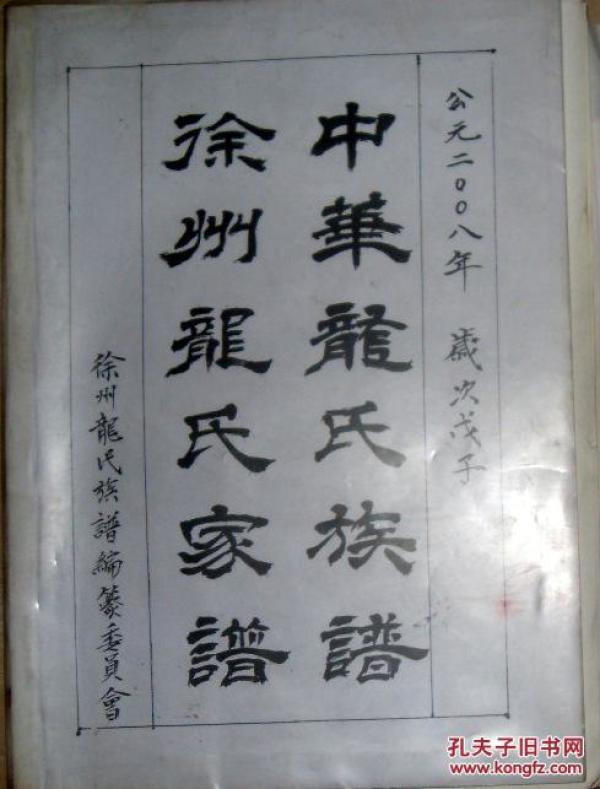 公元二〇〇八年 歲次戊子
中華龍氏族譜
徐州龍氏家譜
徐州龍氏族譜編纂委員會
孔夫子旧书网
www.kongfz.com